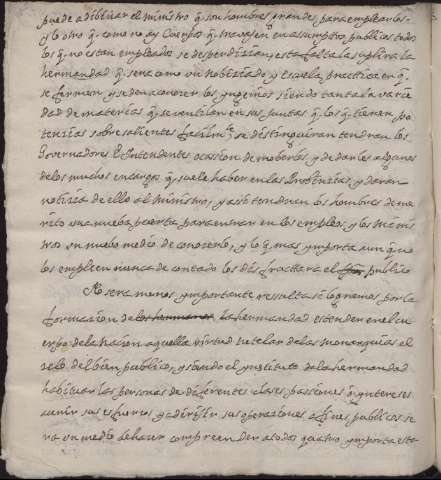 puede adibinar el ministro q.e son hombres grandes para emplearlos
y lo otro q.e como no ay Cuerpos q.e travajen en asumptos publicos todos
los q.e no estan empleados se desperdician, esta falta la suplira la
hermandad q.e sera como un nobiziado y escuela practica en q.e
se formen y se den a conocer los yngenios siendo tanta la varie
dad de materias q.e se ventilan en sus juntas q.e los q.e tienen po
tenzias sobresalientes facilm.te se distinguiran tendran los
Governadores e Yntendentes ocasion de moberlos, y de darles algunos
de los muchos encargos q.e suele haber en las Probinzias, y daran
notizia de ello al ministro, y assi tendran los hombres de me
rito una nueba puerta para entrar en los empleos, y los minis
tros un nuebo medio de conocerlos, y lo q.e mas ymporta aun q.e no
los empleen nunca de contado los dis fructara el publico
No sera menos ymportante resulta si logramos por la
formacion de los hermanos la hermandad estender en el cu
erpo de la nacion aquella virtud tutelar de las monarquias el
zelo del bien publico, y siendo el ynstituto de la hermandad
habituar las personas de diferentes clases pasiones q.e ynterese
a unir sus esfuerzos y a dirijir sus operaziones a fines publicos se
ra un medio de hacer comprender a todos quanto ymporta esta